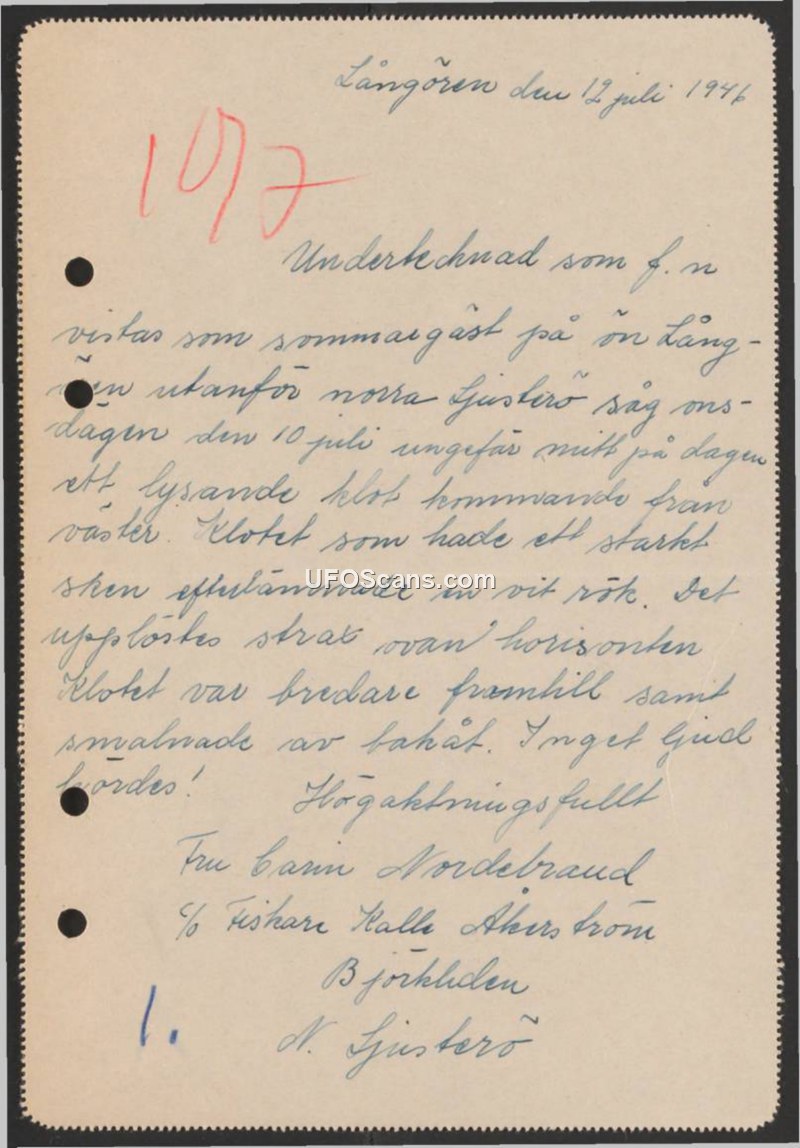 Långören den 12 juli 1946
10/7
Undertecknad som f.n
vistas som sommargäst på ön Lång-
ören utanför norra Ljusterö såg ons-
dagen den 10 juli ungefär mitt på dagen
ett lysande klot kommande från
väster. Klotet som hade ett starkt
sken efterlämnade en vit rök. Det
upplöstes strax ovan horisonten
Klotet var bredare framtill samt
smalnade av bakåt. Inget ljud
hördes!
Högaktningsfullt
Fru Carin Nordebrand
c/o Fiskare Kalle Åkerström
Björkliden
N. Ljusterö
1.
UFOScans.com